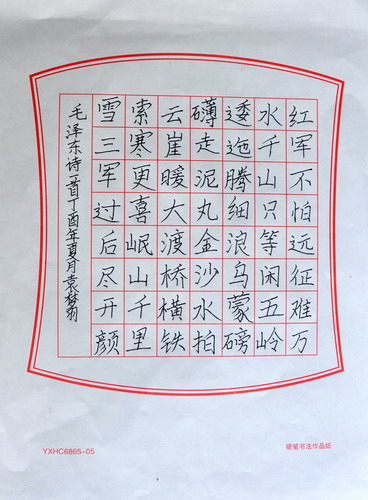 红军不怕远征难万
水千山只等闲五岭
逶迤腾细浪乌蒙磅
礴走泥丸金沙水拍
云崖暖大渡桥横铁
索寒更喜岷山千里
雪三军过后尽开颜
毛泽东诗一首丁酉年夏月袁梦羽
YXHC6865-05
硬笔书法作品纸